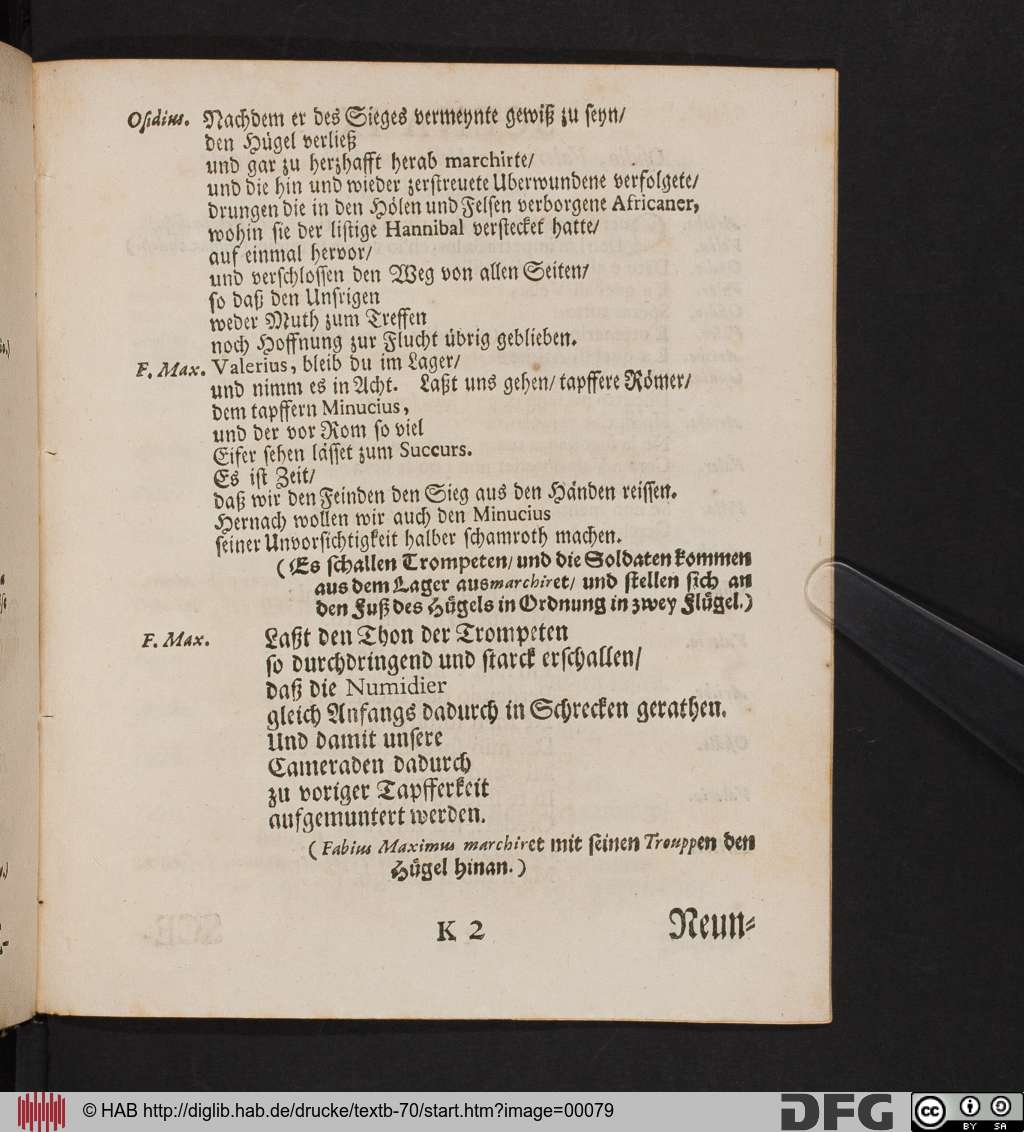 Osidius. Nachdem er des Sieges vermeynte gewiß zu seyn/
den Hügel verließ
und gar zu herzhafft herab marchirte/
und die hin und wieder zerstreuete Uberwundene verfolgete/
drungen die in den Hölen und Felsen verborgene Africaner,
wohin sie der listige Hannibal verstecket hatte/
auf einmal hervor/
und verschlossen den Weg von allen Seiten/
so daß den Unsrigen
weder Muth zum Treffen
noch Hoffnung zur Flucht übrig geblieben.
F. Max. Valerius, bleib du im Lager/
und nimm es in Acht. Laßt uns gehen/ tapffere Römer/
dem tapffern Minucius,
und der vor Rom so viel
Eifer sehen lässet zum Succurs.
Es ist Zeit/
daß wir den Feinden den Sieg aus den Händen reissen.
Hernach wollen wir auch den Minucius
seiner Unvorsichtigkeit halber schamroth machen.
(Es schallen Trompeten/ und die Soldaten kommen
aus dem Lager ausmarchiret/ und stellen sich an
den Fuß des Hügels in Ordnung in zwey Flügel.)
F. Max. Laßt den Thon der Trompeten
so durchdringend und starck erschallen/
daß die Numidier
gleich Anfangs dadurch in Schrecken gerathen.
Und damit unsere
Cameraden dadurch
zu voriger Tapfferkeit
aufgemuntert werden.
(Fabius Maximus marchiret mit seinen Trouppen den
Hügel hinan.)
K 2 Neun-
© HAB http://diglib.hab.de/drucke/textb-70/start.htm?image=00079
DFG
cc BY SA